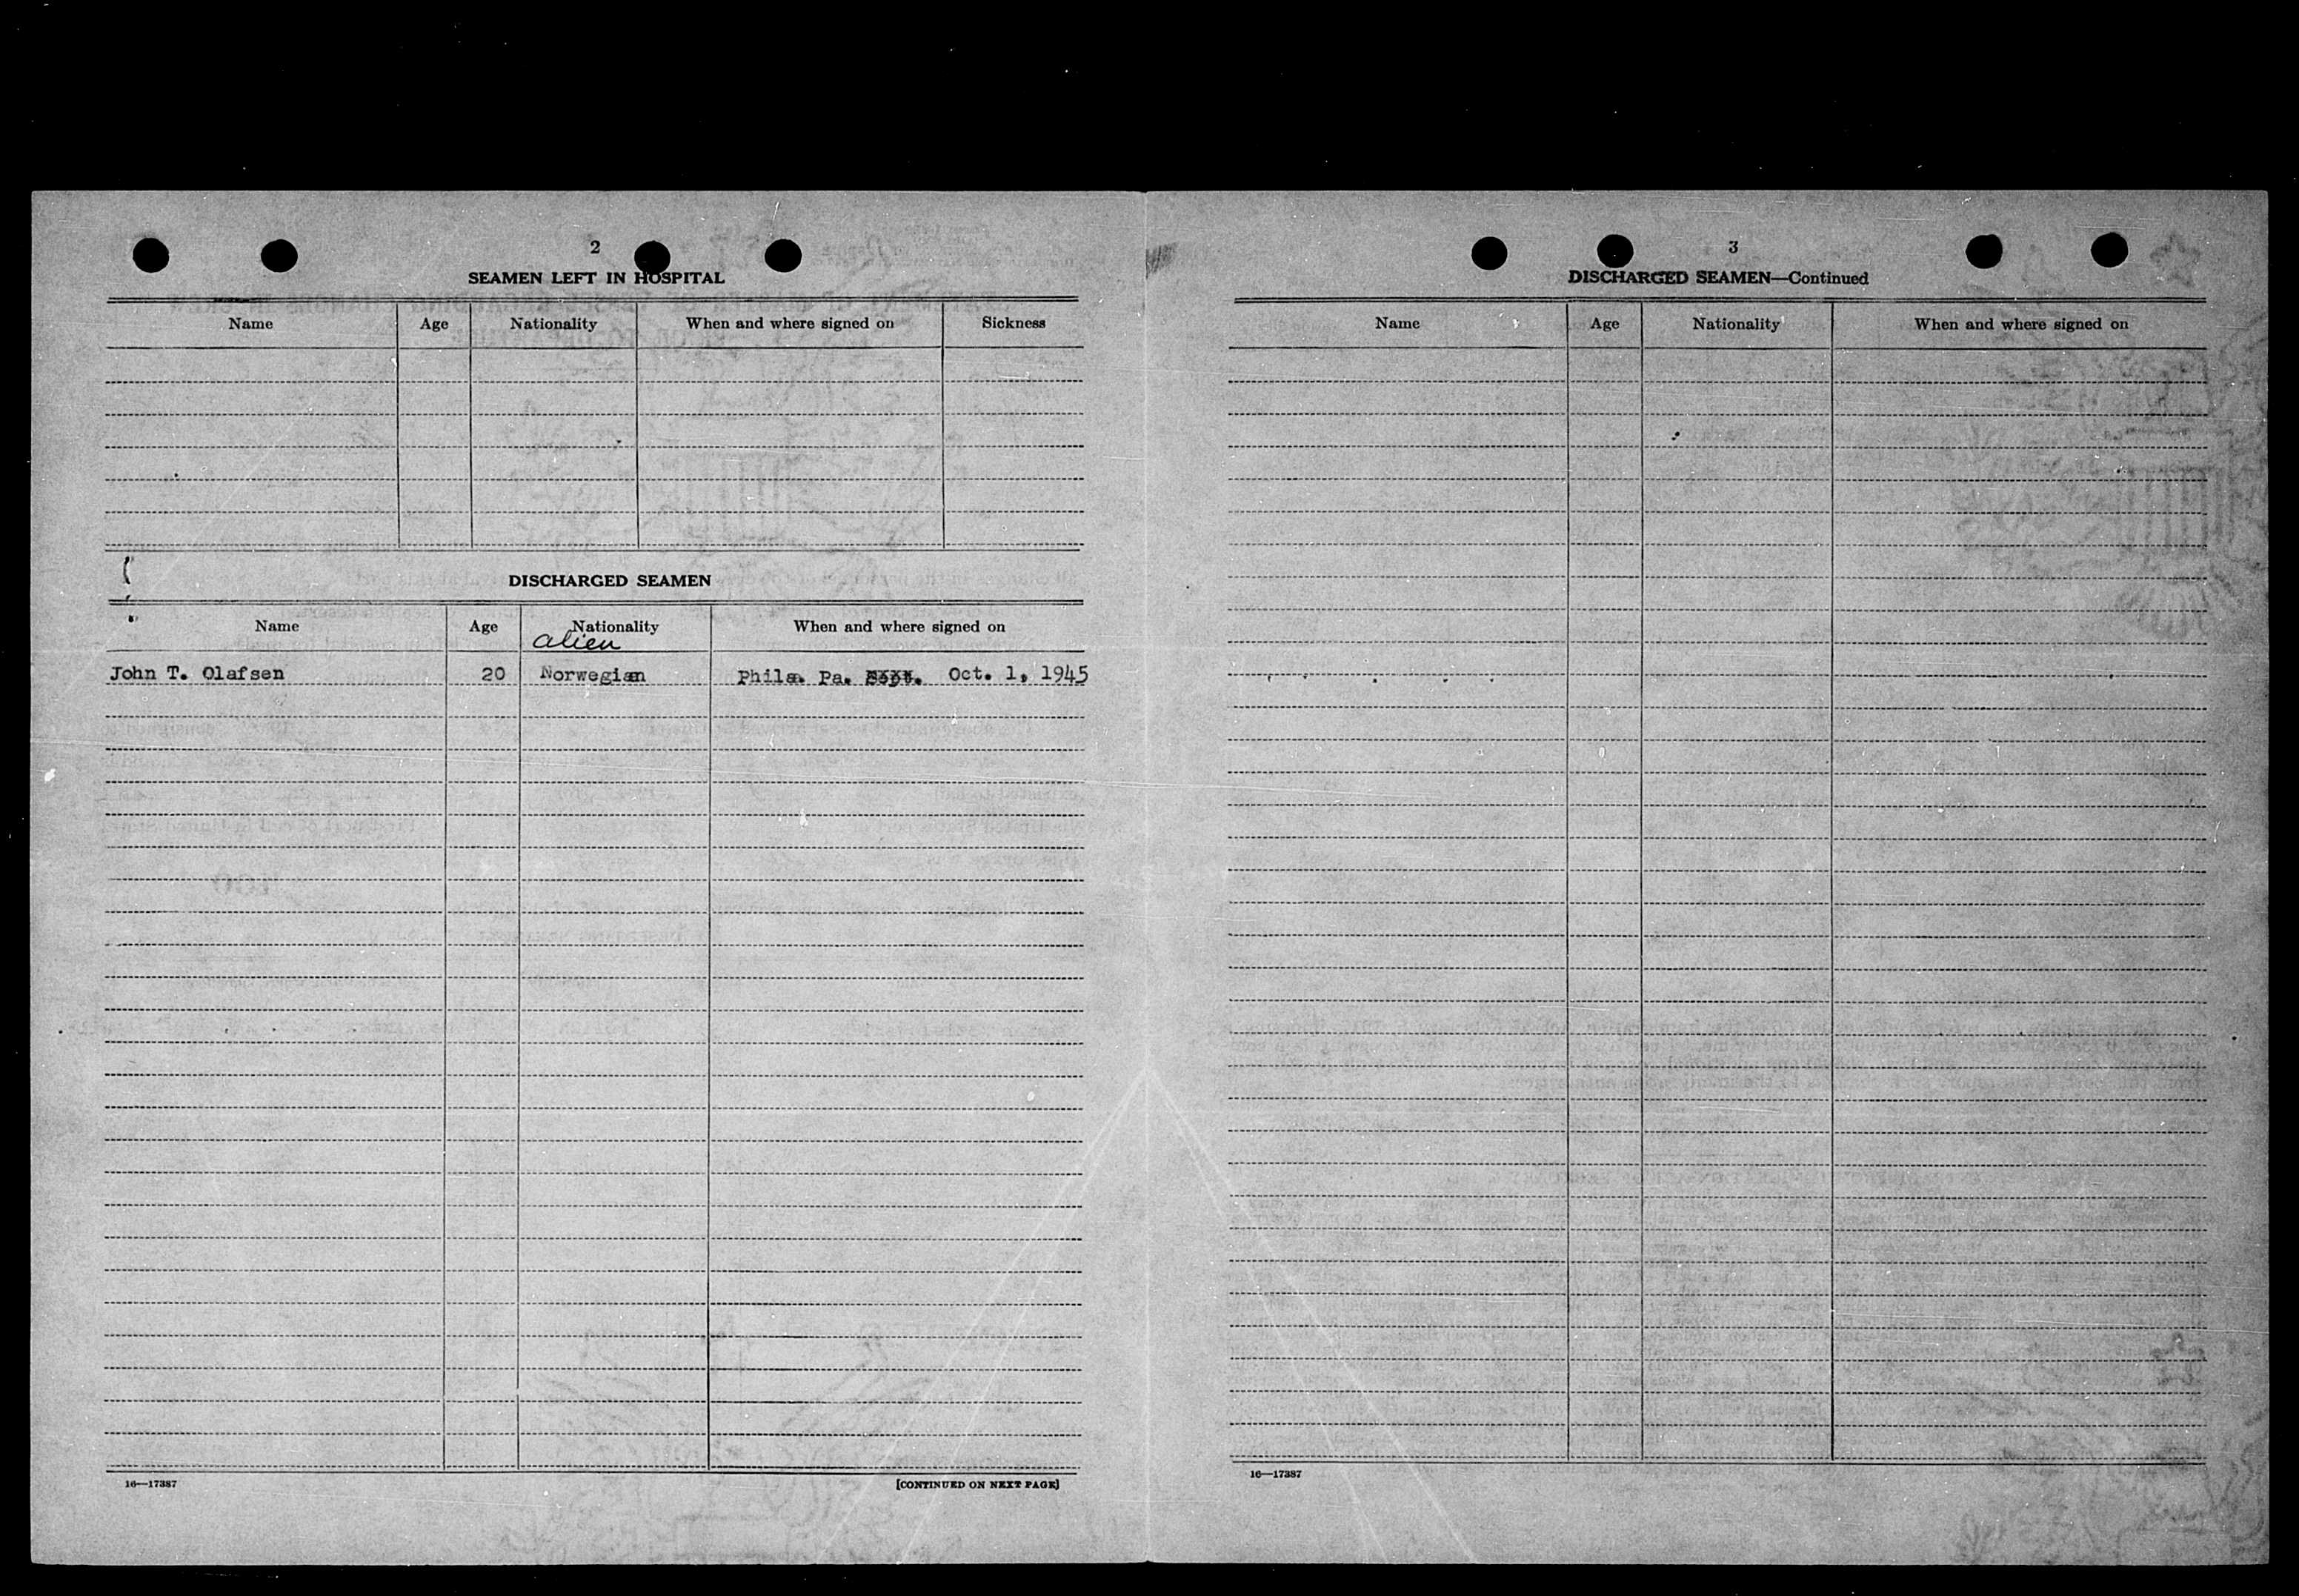 2
SEAMEN LEFT IN HOSPITAL
Name Age Nationality When and where signed on Sickness
DISCHARGED SEAMEN
Name Age Nationality When and where signed on
alien
John T. Olafsen 20 Norwegian Phila. Pa. Sept. Oct. 1, 1945
16—17387
[CONTINUED ON NEXT PAGE]
3
DISCHARGED SEAMEN—Continued
Name Age Nationality When and where signed on
16—17387